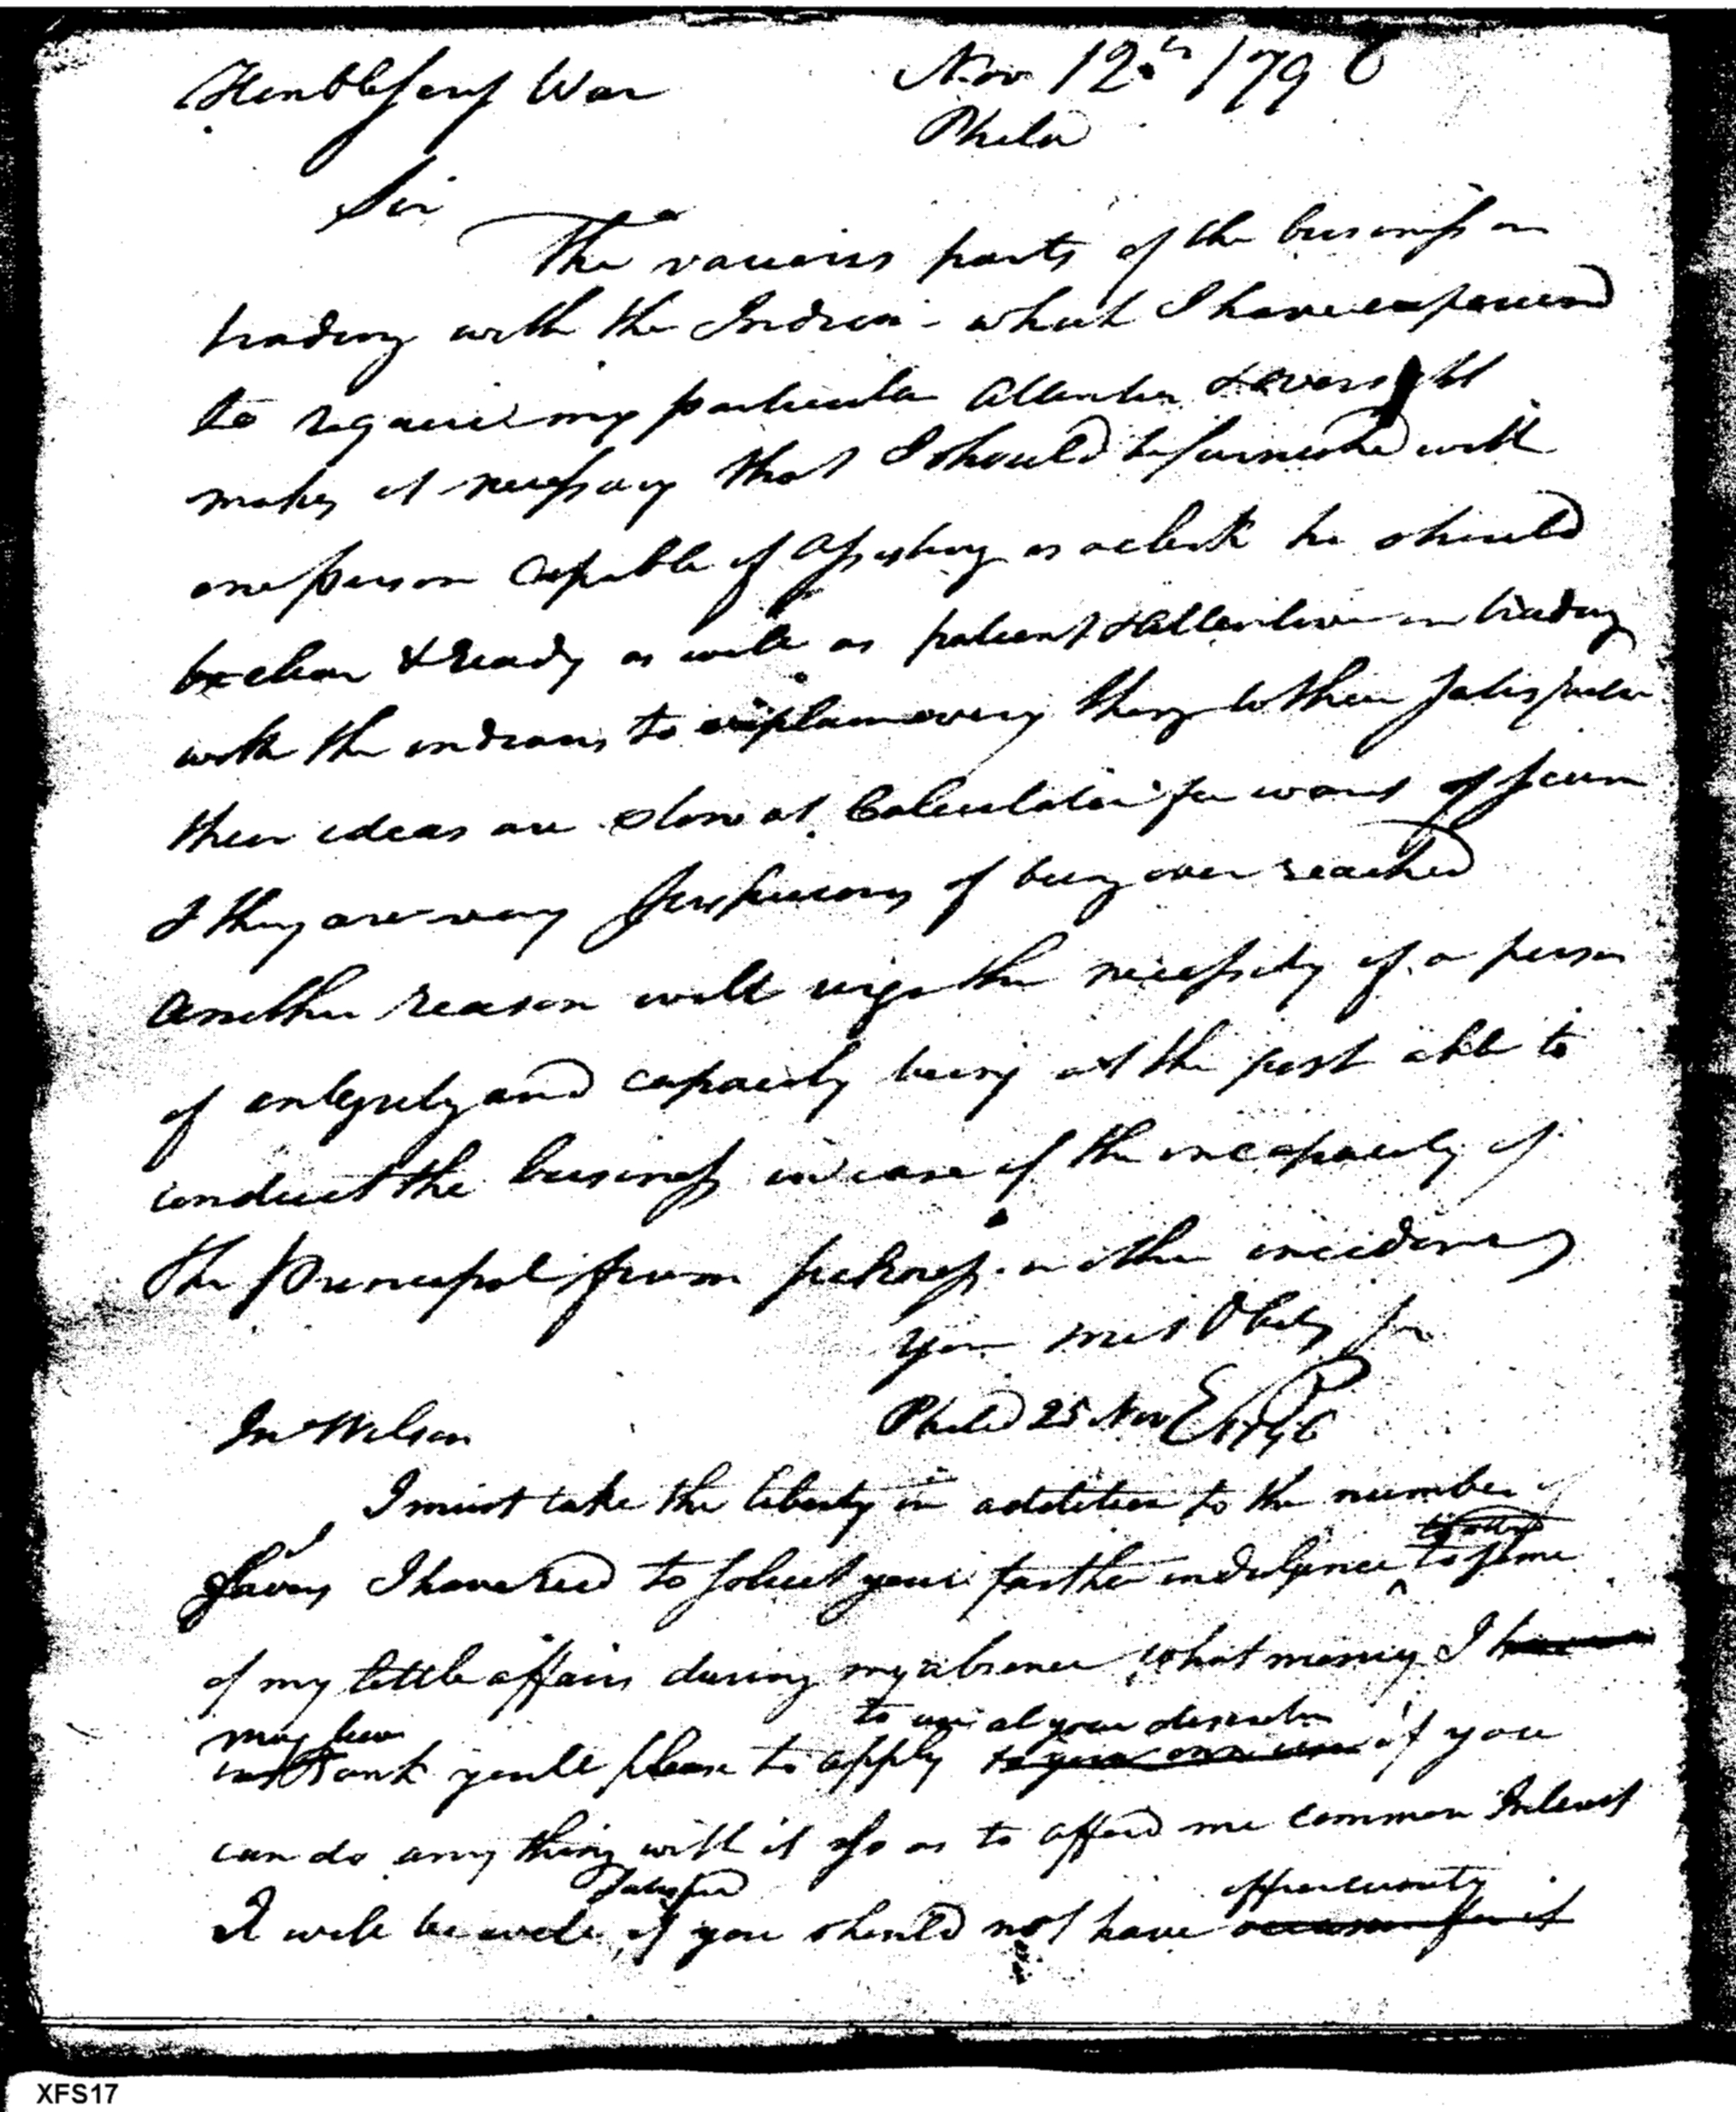 Honble Secy War Nov 12th 1796
Phila
Sir
The various parts of the business in
trading with the Indian - what I have experienced
to require my particular attention & oversight
makes it necessary that I should be furnished with
one person capable of assisting as a clerk he should
be clear & ready as well as patient & attentive in trading
with the indians to explain every thing to their satisfaction
their ideas are slow at Calculation for want of
& they are very suspicious of being over reached
Another reason will urge the necessity of a person
of integrity and capacity being at the post able to
conduct the business in case of the incapacity of
the Principal from sickness or other incidents
Your most Obedt Ser
EP
Jno Wilson Philad 25 Nov 1796
I must take the liberty in addition to the number of
favors I have recd to solicit your farther indulgence to attend to some
of my little affairs during my absence what money I have
may leave
in Bank youll please to apply to your own use to use at your discretion if you
can do any thing with it so as to afford me common Interest
I will be well satisfied if you should not have occasion for it opportunity
XFS17